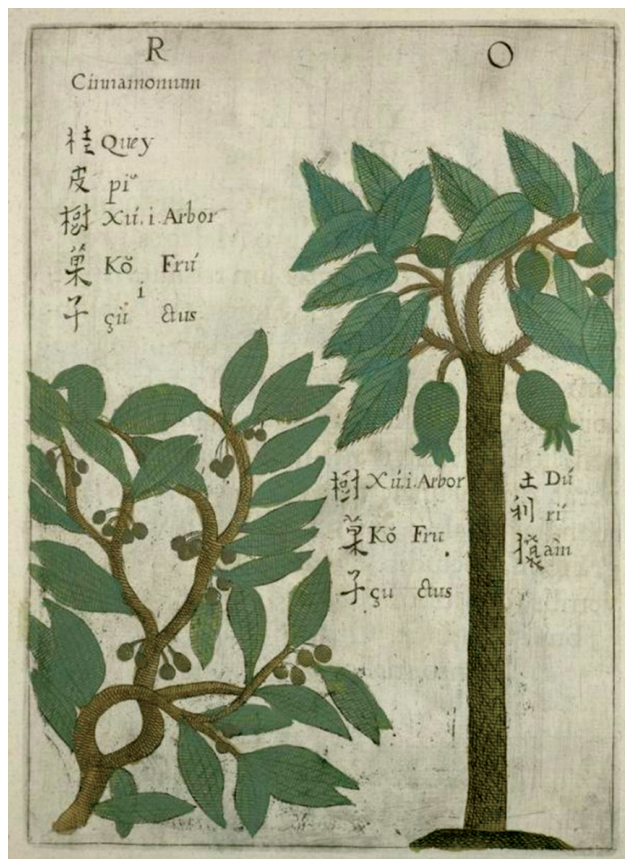 R
Cinnamomum
桂 Quéy
皮 pi
樹 Xú.i.Arbor
菓 Kǒ Frú
i
子 çù ctus
O
樹 Xú.i.Arbor
菓 Kǒ Fru
子 çu ctus
土 Dú
利 rí